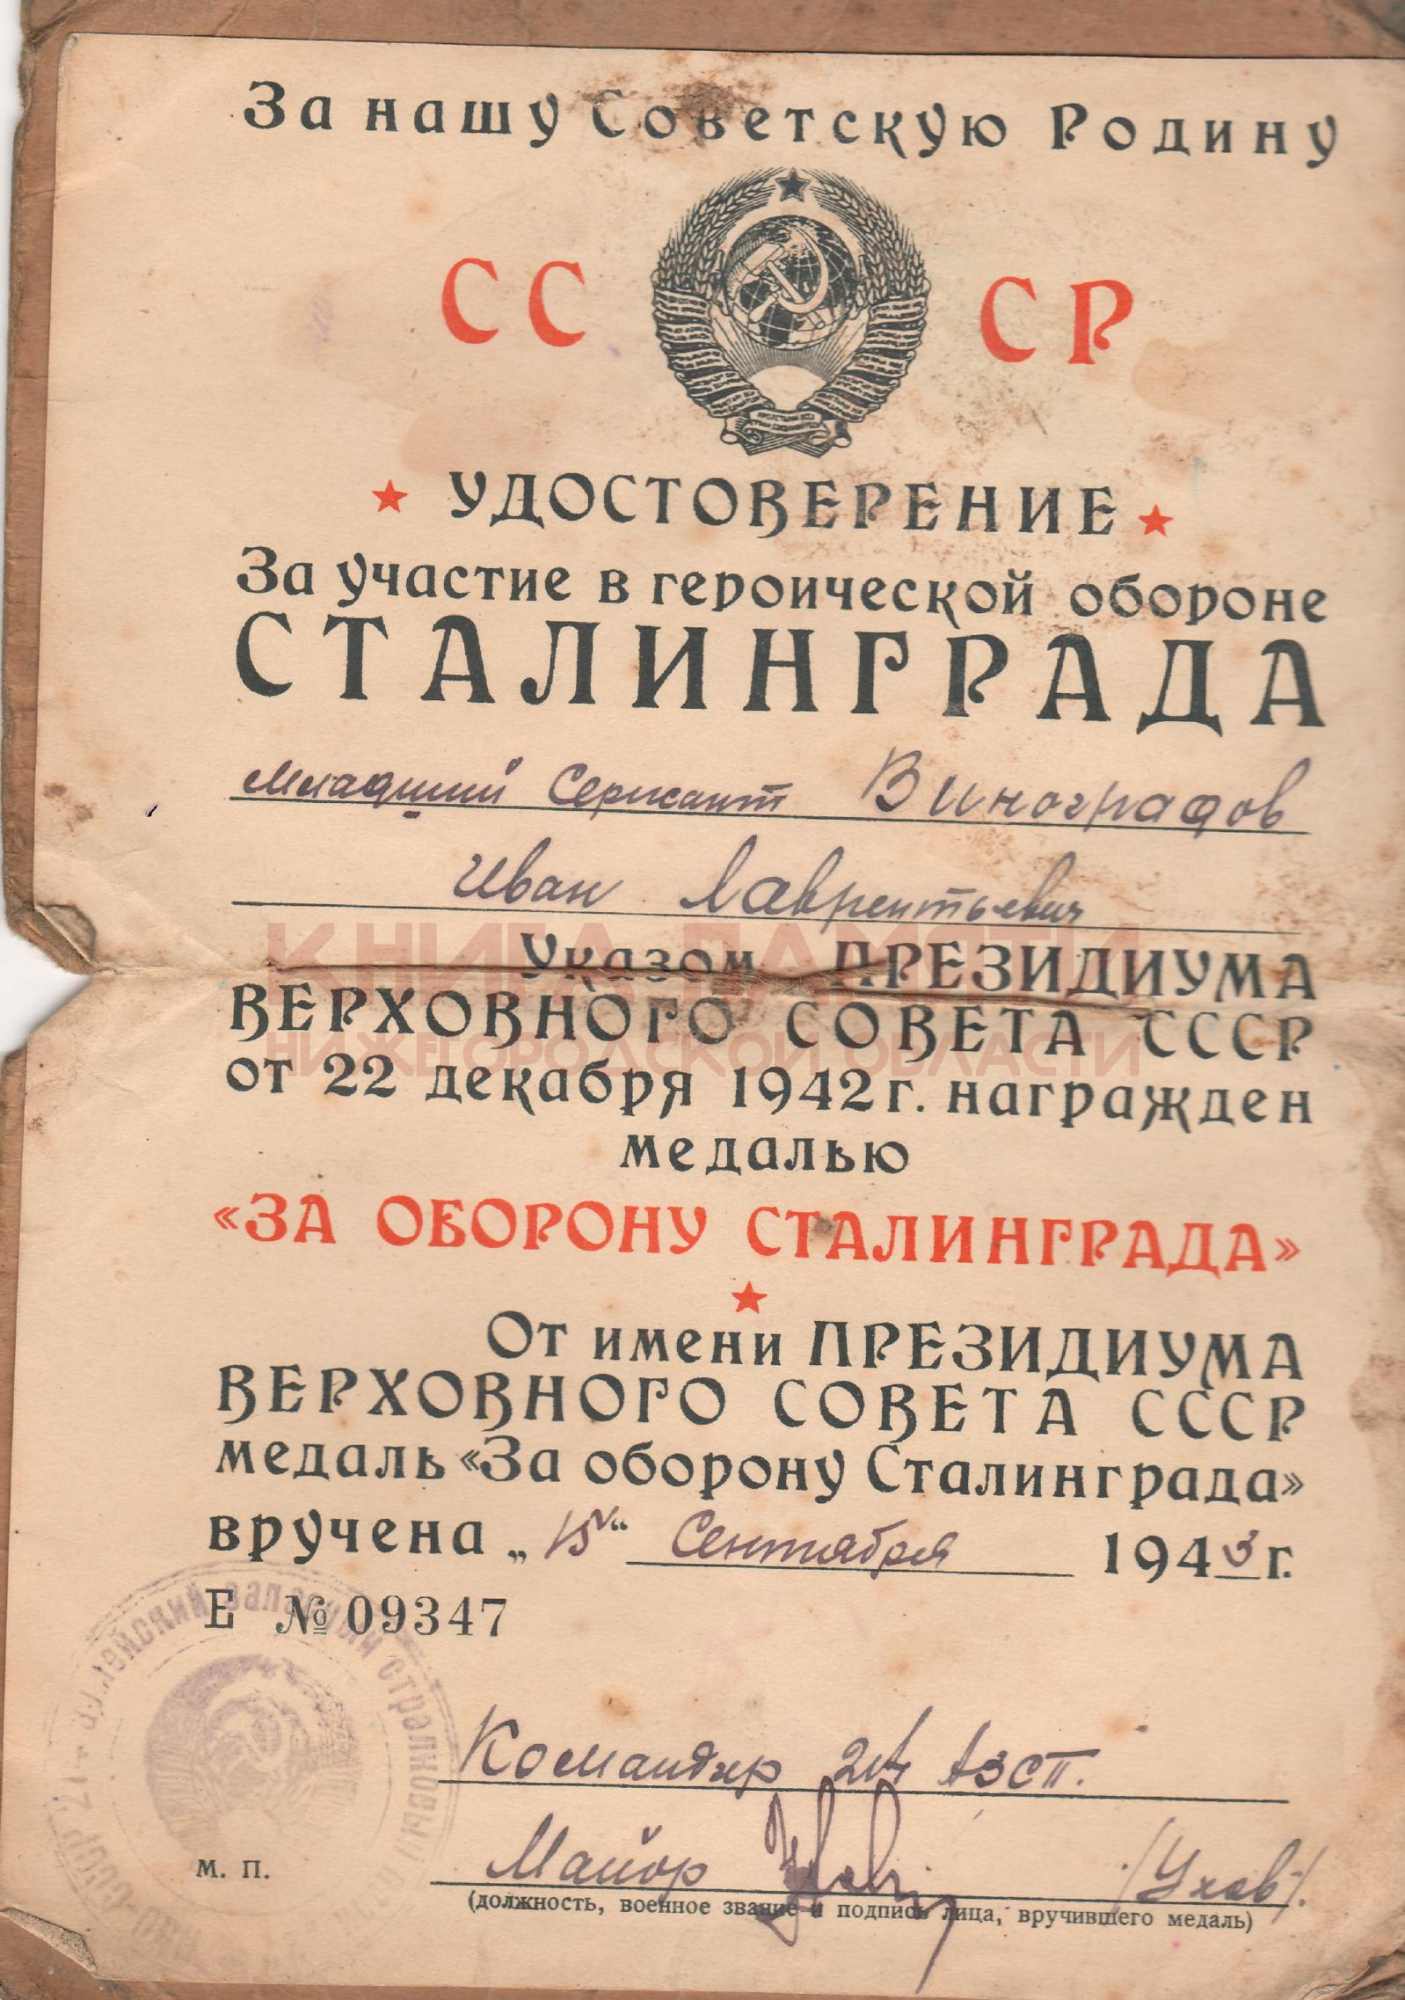 За нашу Советскую Родину
СС СР
УДОСТОВЕРЕНИЕ
За участие в героической обороне
СТАЛИНГРАДА
Младший Сержант Виноградов
Иван Лаврентьевич
КНИГА ПАМЯТИ
НИЖЕГОРОДСКОЙ ОБЛАСТИ
Указом ПРЕЗИДИУМА
ВЕРХОВНОГО СОВЕТА СССР
от 22 декабря 1942 г. награжден
медалью
«ЗА ОБОРОНУ СТАЛИНГРАДА»
От имени ПРЕЗИДИУМА
ВЕРХОВНОГО СОВЕТА СССР
медаль «За оборону Сталинграда»
вручена „15“ Сентября 1943 г.
Е № 09347
Командир 21 АЗСП.
Майор /Ухов/.
М. П.
(должность, военное звание и подпись лица, вручившего медаль)